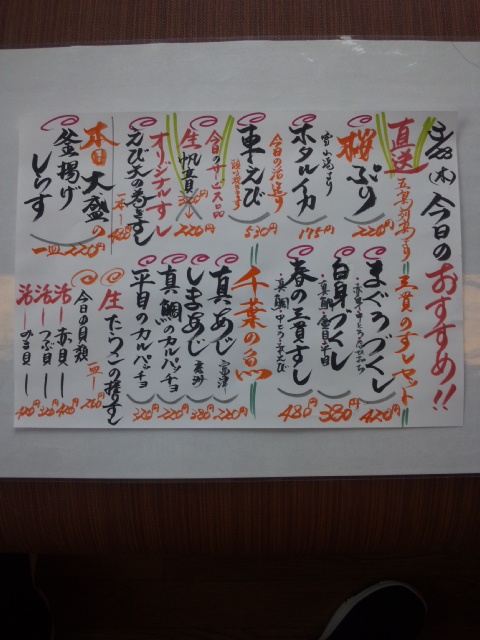 3/28(木) 今日のおすすめ!!
直送
桜ぶり 220円
ホタルイカ 175円
富山湾より
今日の活造り
車えび 530円
今日のサービス品
生帆貝
220円
オリジナルすし
えび天の巻きすし
一本 480円
本日大盛の
釜揚げしらす
一皿 220円
三貫のすしセット
まぐろづくし 420円
白身づくし 380円
春の三貫すし 480円
千葉の魚
真あじ 富津 220円
しまあじ 380円
真鯛のカルパッチョ 220円
平目のカルパッチョ 320円
生たらこの握りすし 260円
今日の貝類 一皿
活 赤貝 420円
活 つぶ貝 320円
活 みる貝